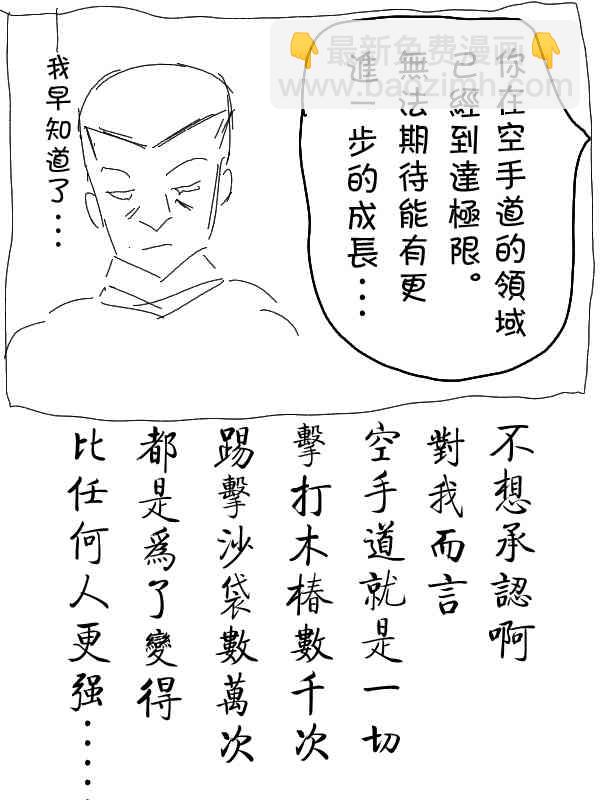 最新免费漫画
www.baozimh.com
你在空手道的領域
已經到達極限。
無法期待能有更
進一步的成長...
我早知道了...
不想承認啊
對我而言
空手道就是一切
擊打木椿數千次
踢擊沙袋數萬次
都是爲了變得
比任何人更强.....